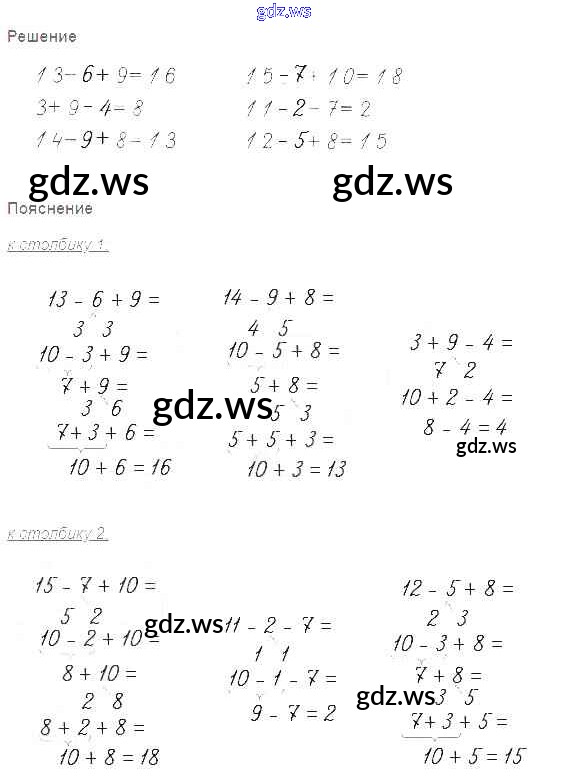 gdz.ws
Решение
13-6+9=16 15-7+10=18
3+9-4=8 11-2-7=2
14-9+8=13 12-5+8=15
gdz.ws gdz.ws
Пояснение
к столбику 1.
13 - 6 + 9 =
3 3
10 - 3 + 9 =
7 + 9 =
3 6
7 + 3 + 6 =
10 + 6 = 16
14 - 9 + 8 =
4 5
10 - 5 + 8 =
5 + 8 =
5 3
5 + 5 + 3 =
10 + 3 = 13
3 + 9 - 4 =
7 2
10 + 2 - 4 =
8 - 4 = 4
gdz.ws
gdz.ws
к столбику 2.
15 - 7 + 10 =
5 2
10 - 2 + 10 =
8 + 10 =
2 8
8 + 2 + 8 =
10 + 8 = 18
gdz.ws
11 - 2 - 7 =
1 1
10 - 1 - 7 =
9 - 7 = 2
12 - 5 + 8 =
2 3
10 - 3 + 8 =
7 + 8 =
3 5
7 + 3 + 5 =
10 + 5 = 15
gdz.ws